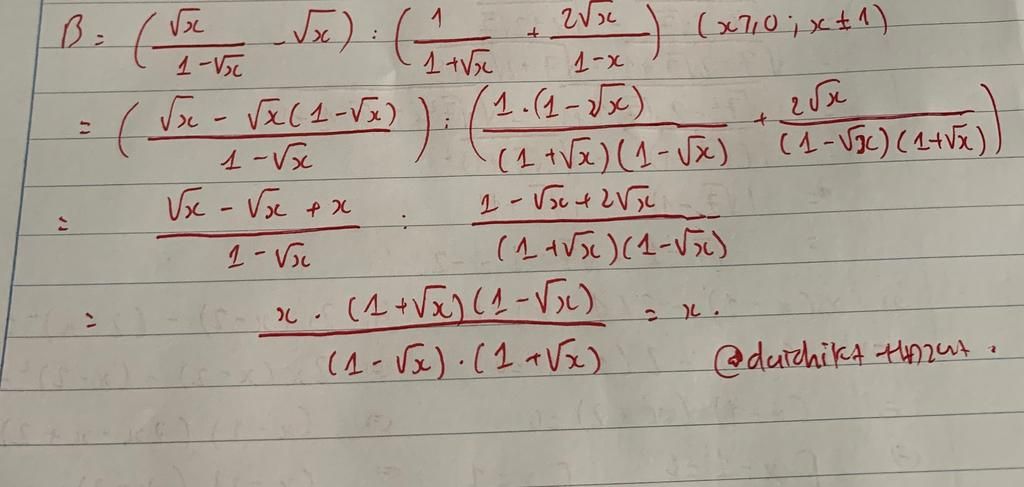 B = (√x/(1-√x) - √x) : (1/(1+√x) + 2√x/(1-x)) (x≥0 ; x ≠ 1)
= ((√x - √x(1-√x))/(1-√x)) : (1.(1-√x)/((1+√x)(1-√x)) + 2√x/((1-√x)(1+√x)))
= (√x - √x + x)/(1-√x) : (1-√x+2√x)/((1+√x)(1-√x))
= x.(1+√x)(1-√x)/((1-√x).(1+√x)) = x.